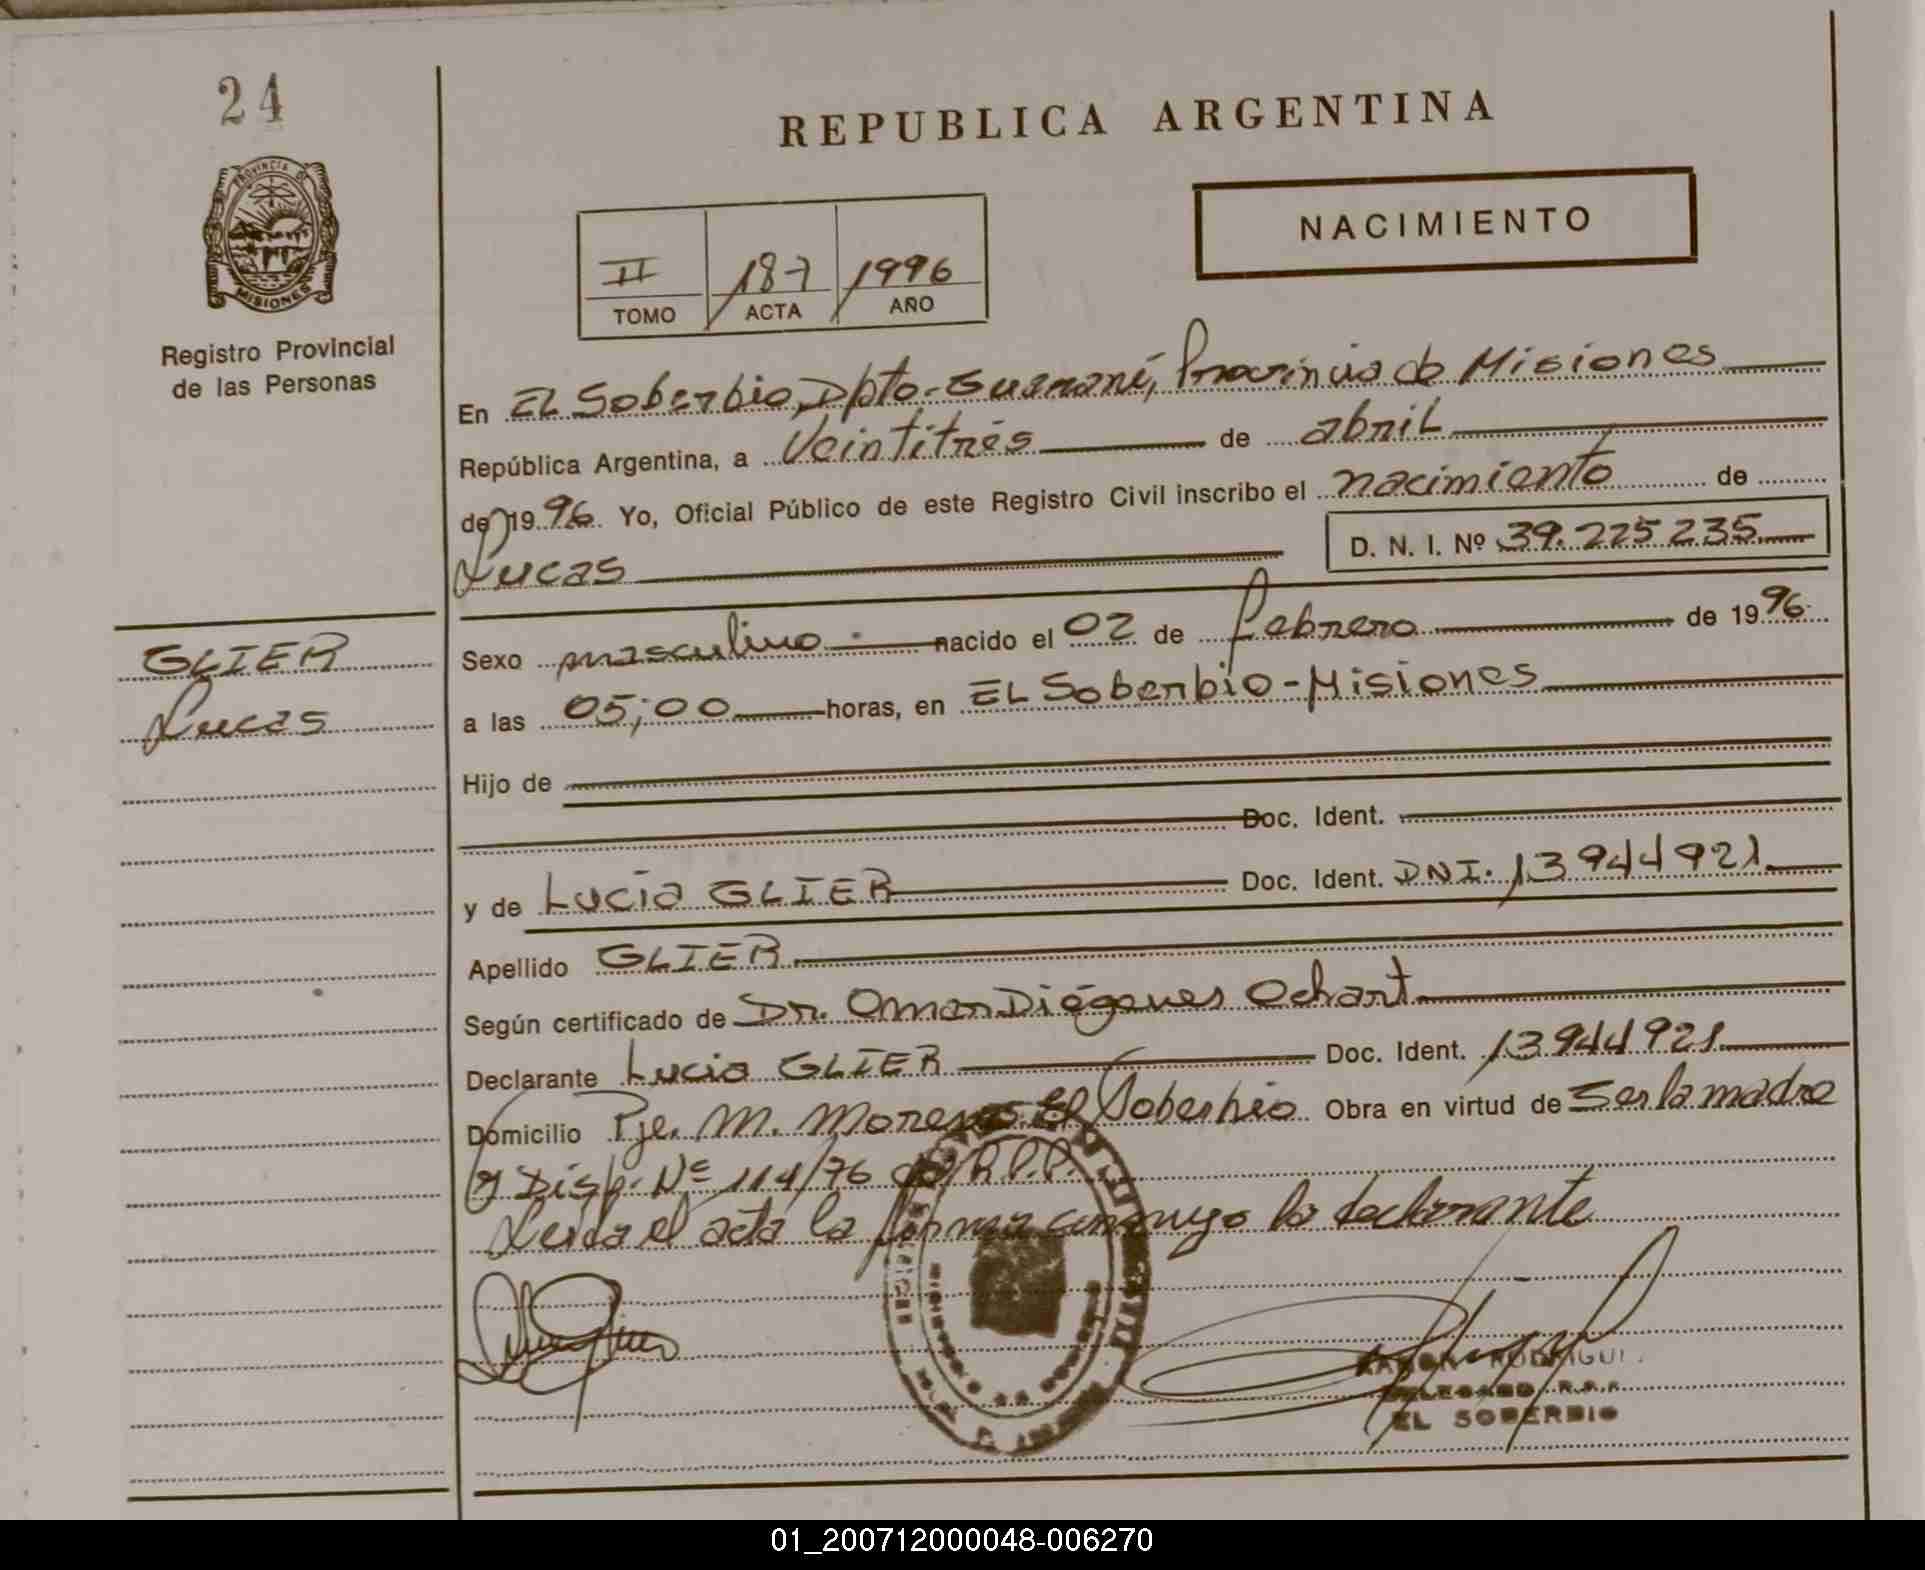 24
REPUBLICA ARGENTINA
PROVINCIA DE
MISIONES
NACIMIENTO
II 187 1996
TOMO ACTA AÑO
Registro Provincial
de las Personas
En EL Soberbio, Dpto-Guaraní, Provincia de Misiones
República Argentina, a Veintitrés de abril
de 1996. Yo, Oficial Público de este Registro Civil inscribo el nacimiento de
Lucas D. N. I. Nº 39.225235
GLIER
Lucas
Sexo masculino nacido el 02 de febrero de 1996
a las 05;00 horas, en EL Soberbio-Misiones
Hijo de
Doc. Ident.
y de Lucia GLIER Doc. Ident. DNI. 13944921
Apellido GLIER
Según certificado de Dr. Omar Diógenes Ochart
Declarante Lucia GLIER Doc. Ident. 13944921
Domicilio Pje. M. Moreno El Soberbio Obra en virtud de Ser la madre
y Disp. Nº 114/76 R.P.P.
Leida el acta la firma conmigo la declarante
RODRIGU
DELEGADO R.P.P.
EL SOBERBIO
01_200712000048-006270